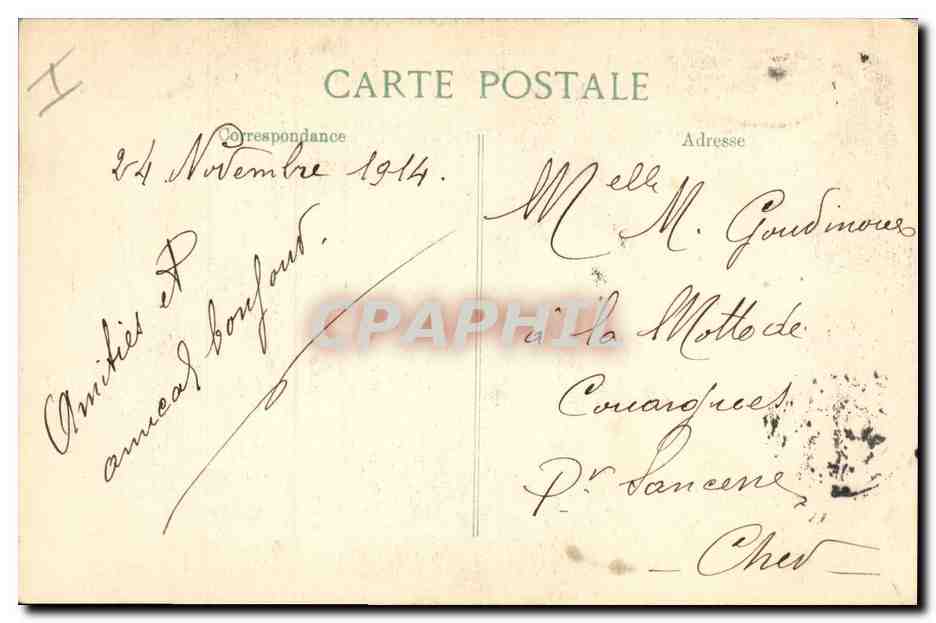 I
CARTE POSTALE
Correspondance
24 Novembre 1914.
Amitiés et
amical bonjour.
Adresse
Melle M. Goudinoux
à la Motte de
Couargues
Pr Sancerre
- Cher -
CPAPHIL